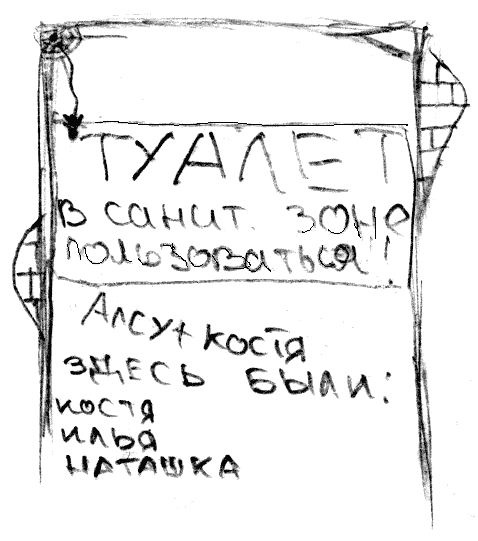 ТУАЛЕТ
В санит. зоне
пользоваться!
АЛСУ+КОСТЯ
ЗДЕСЬ БЫЛИ:
КОСТЯ
ИЛЬЯ
НАТАШКА